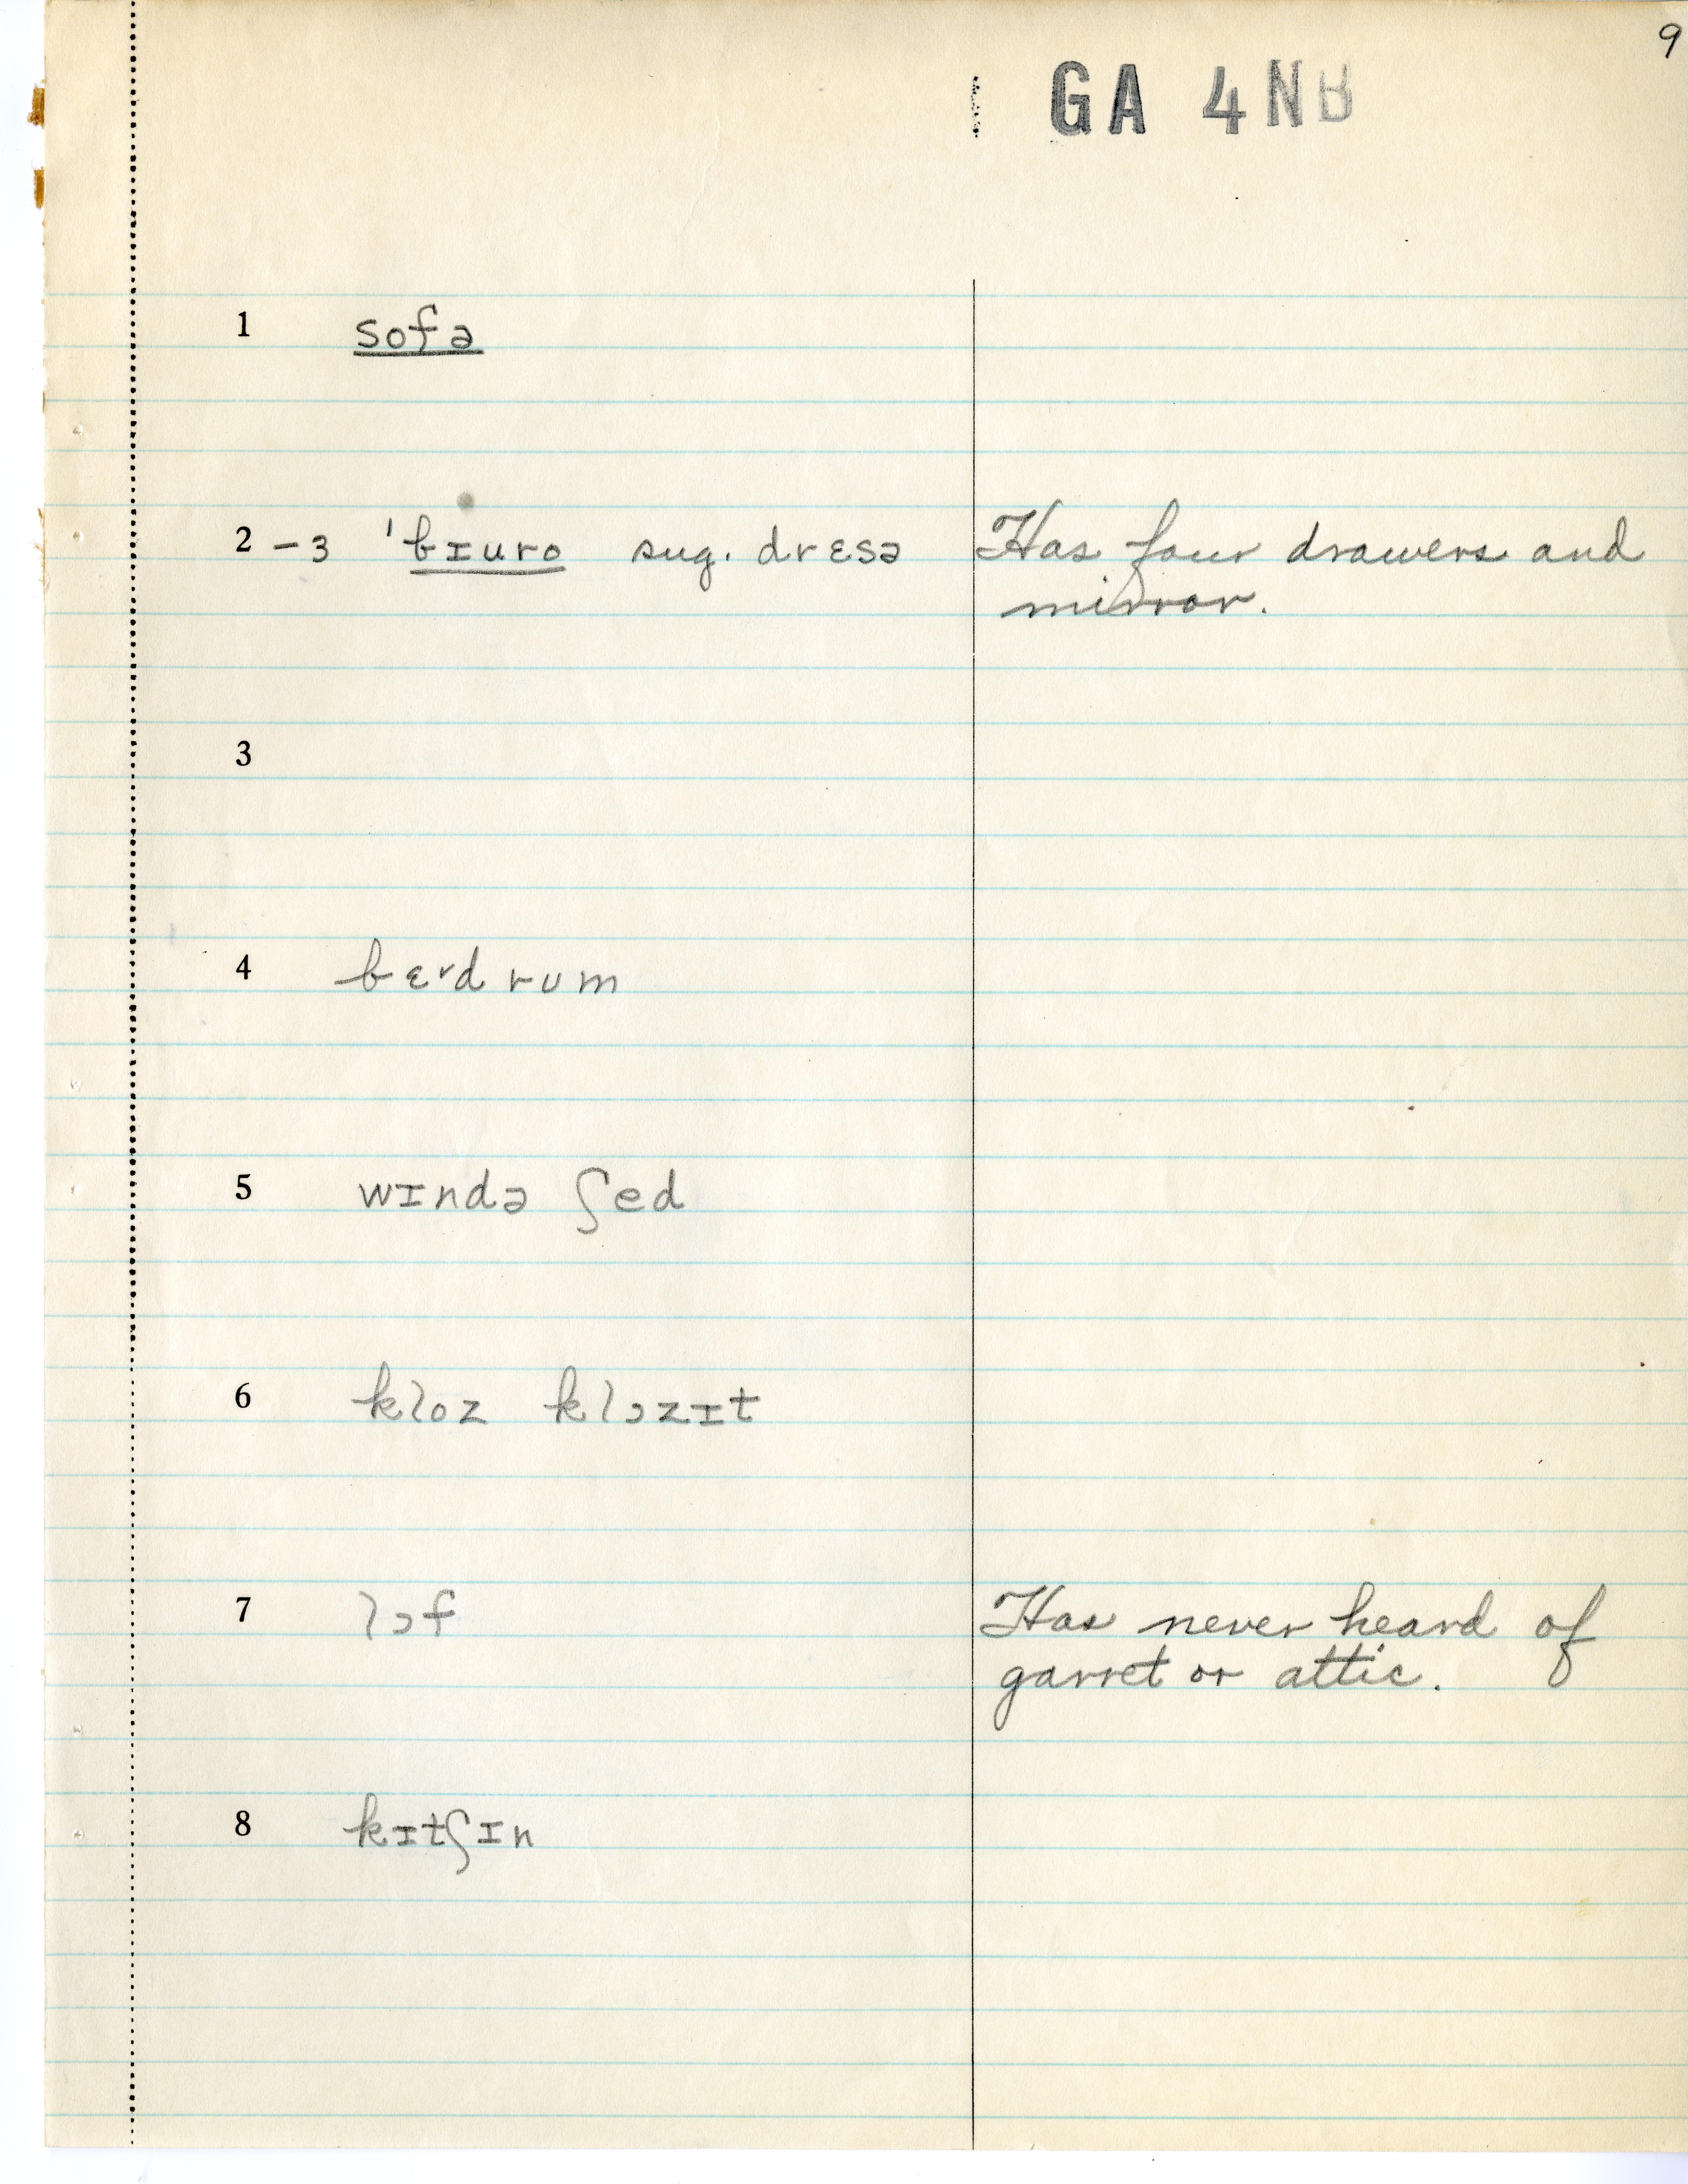 9
GA 4NB
1 sofə
2 -3 'bɪuro sug. drɛsə Has four drawers and
mirror.
3
4 bɛɤdrum
5 wɪndə ʃed
6 kloz klɔzɪt
7 lɔf Has never heard of
garret or attic.
8 kɪtʃɪn